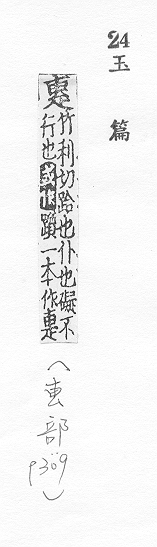 24
玉篇
疐竹利切跲也仆也礙不
行也或作躓一本作疐
(叀部
p309)